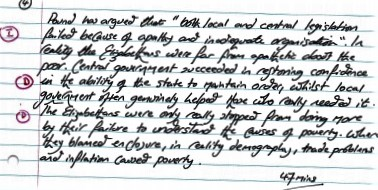 4
I Pound has argued that "both local and central legislation
failed because of apathy and inadequate organisation". In
reality the Elizabethans were far from apathetic about the
poor. Central government succeeded in restoring confidence
D in the ability of the state to maintain order, whilst local
government often genuinely helped those who really needed it.
D The Elizabethans were only really stopped from doing more
by their failure to understand the causes of poverty. When
they blamed enclosure, in reality demography, trade problems
and inflation caused poverty.
47 mins